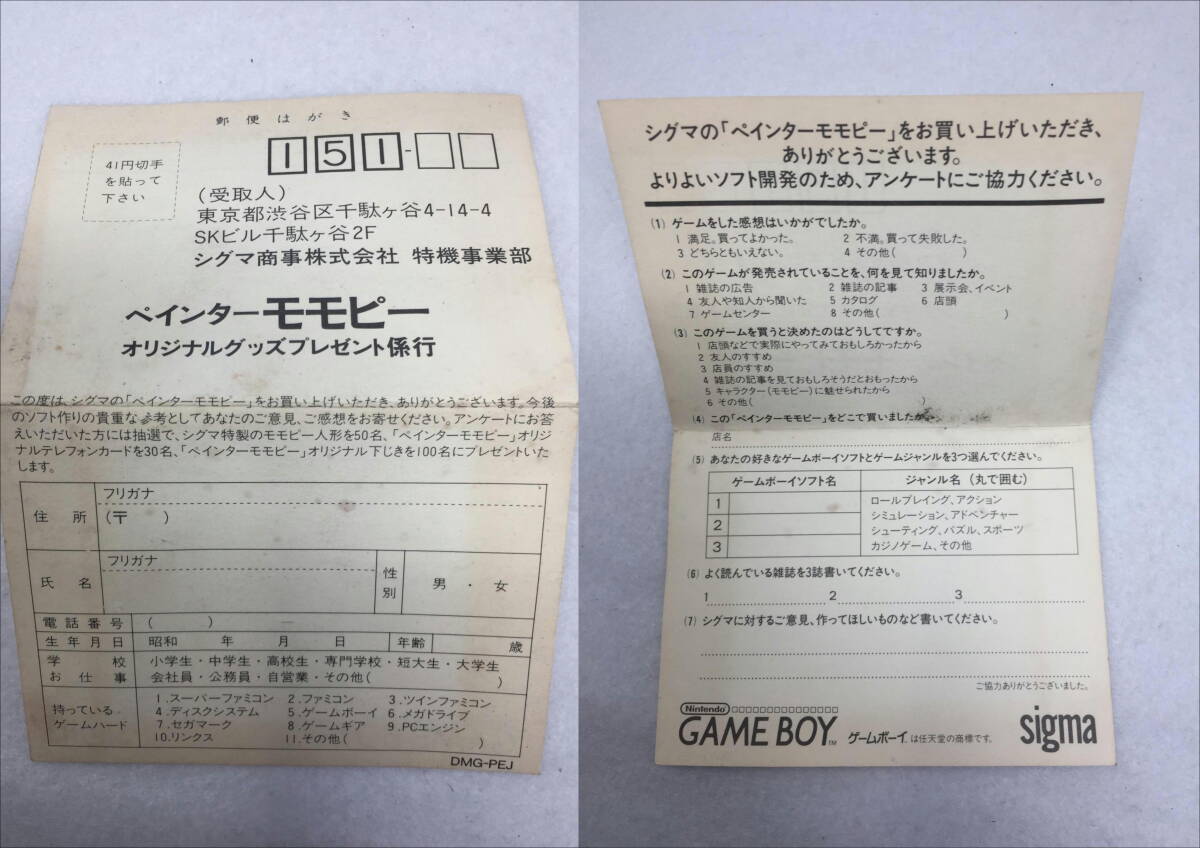 郵便はがき
41円切手
を貼って
下さい
151-
(受取人)
東京都渋谷区千駄ヶ谷4-14-4
SKビル千駄ヶ谷2F
シグマ商事株式会社 特機事業部
ペインターモモピー
オリジナルグッズプレゼント係行
この度は、シグマの「ペインターモモピー」をお買い上げいただき、ありがとうございます。今後
のソフト作りの貴重な参考としてあなたのご意見、ご感想をお寄せください。アンケートにお答
えいただいた方には抽選で、シグマ特製のモモピー人形を50名、「ペインターモモピー」オリジ
ナルテレフォンカードを30名、「ペインターモモピー」オリジナル下じきを100名にプレゼントいた
します。
フリガナ
住所 (〒 )
フリガナ
氏名 性別 男・女
電話番号 ( )
生年月日 昭和 年 月 日 年齢 歳
学校 小学生・中学生・高校生・専門学校・短大生・大学生
お仕事 会社員・公務員・自営業・その他( )
持っている
ゲームハード
1.スーパーファミコン 2.ファミコン 3.ツインファミコン
4.ディスクシステム 5.ゲームボーイ 6.メガドライブ
7.セガマーク 8.ゲームギア 9.PCエンジン
10.リンクス 11.その他( )
DMG-PEJ
シグマの「ペインターモモピー」をお買い上げいただき、
ありがとうございます。
よりよいソフト開発のため、アンケートにご協力ください。
(1) ゲームをした感想はいかがでしたか。
1 満足。買ってよかった。 2 不満。買って失敗した。
3 どちらともいえない。 4 その他( )
(2) このゲームが発売されていることを、何を見て知りましたか。
1 雑誌の広告 2 雑誌の記事 3 展示会、イベント
4 友人や知人から聞いた 5 カタログ 6 店頭
7 ゲームセンター 8 その他( )
(3) このゲームを買うと決めたのはどうしてですか。
1 店頭などで実際にやってみておもしろかったから
2 友人のすすめ
3 店員のすすめ
4 雑誌の記事を見ておもしろそうだとおもったから
5 キャラクター(モモピー)に魅せられたから
6 その他( )
(4) この「ペインターモモピー」をどこで買いましたか。
店名
(5) あなたの好きなゲームボーイソフトとゲームジャンルを3つ選んでください。
ゲームボーイソフト名 ジャンル名(丸で囲む)
1
2
3
ロールプレイング、アクション
シミュレーション、アドベンチャー
シューティング、パズル、スポーツ
カジノゲーム、その他
(6) よく読んでいる雑誌を3誌書いてください。
1 2 3
(7) シグマに対するご意見、作ってほしいものなど書いてください。
ご協力ありがとうございました。
Nintendo
GAME BOY™ ゲームボーイは任天堂の商標です。 sigma